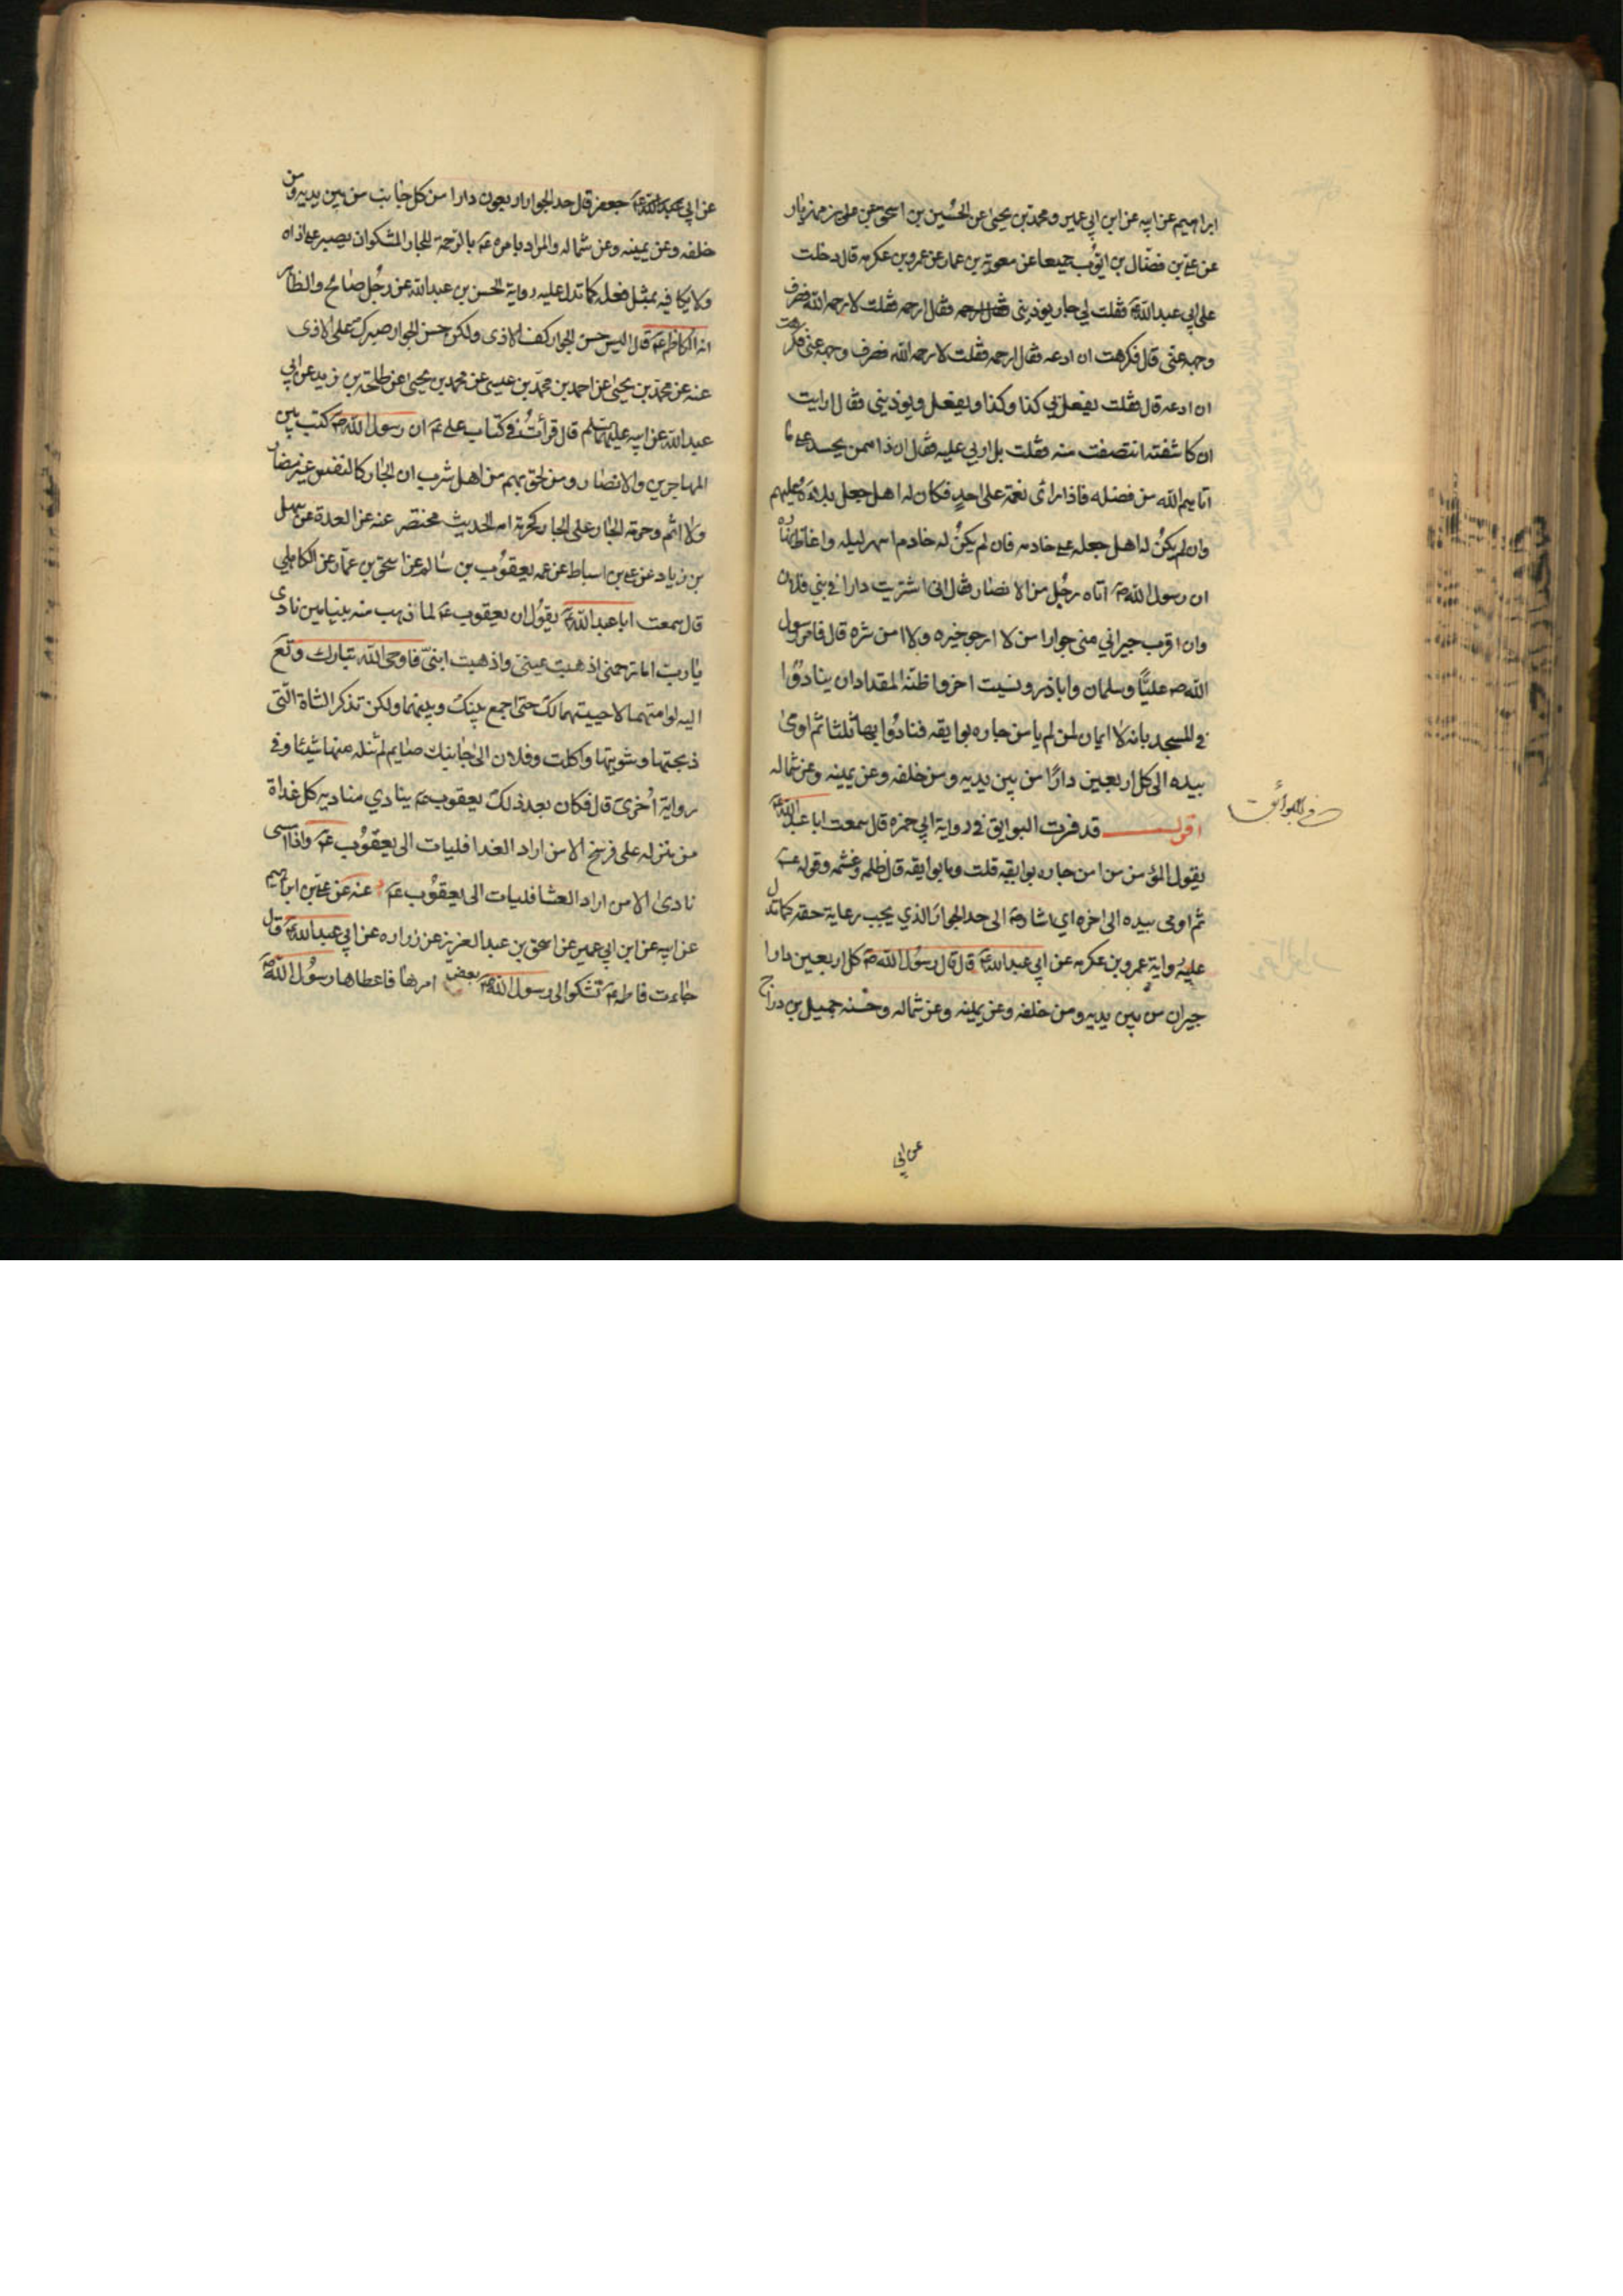 ابراهيم عن ابيه عن ابن ابي عمير ومحمد بن يحيى عن الحسين بن اسحق عن على بن مهزيار
عن علي بن فضال بن ايوب جميعا عن معوية بن عمار عن عمرو بن عكرمه قال دخلت
على ابي عبد الله ع فقلت لي جار يوذيني فقال ارحمه فقال ارحمه فقلت لا رحمه الله فصرف
وجهه عنى قال فكرهت ان ادعه فقال ارحمه فقلت لا رحمه الله فصرف وجهه عنى فكرهت
ان ادعه قال فقلت يفعل بي كذا وكذا ويفعل ويوذيني فقال ارايت
ان كاشفته انتصفت منه فقلت بل اربي عليه فقال ان ذا ممن يحسد على ما
اتاهم الله من فضله فاذا راى نعمة على احد فكان له اهل جعل بلاءه عليهم
وان لم يكن له اهل جعله على خادمه فان لم يكن له خادم اسهر ليله واغاظ نهاره
ان رسول الله ص اتاه رجل من الانصار فقال انى اشتريت دارا في بني فلان
وان اقرب جيراني منى جوارا من لا ارجو خيره ولا امن شره قال فامر رسول
الله ص عليًّا وسلمان واباذر ونسيت اخر واظنه المقداد ان ينادوا
في المسجد بانه لا ايمان لمن لم يامن جاره بوايقه فنادوا بها ثلثا ثم اومى
بيده الى كل اربعين دارًا من بين يديه ومن خلفه وعن يمينه وعن شماله
اقول قد فسرت البوايق في رواية ابي حمزه قال سمعت ابا عبد الله ع
في البوائق
يقول المؤمن من امن جاره بوايقه قلت وما بوايقه قال ظلمه وغشمه وقوله ع
ثم اومى بيده الى اخره اي اشارة الى حد الجوار الذي يجب رعاية حقه كما تدل
عليه رواية عمرو بن عكرمه عن ابي عبد الله ع قال قال رسول الله ص كل اربعين دارا
جيران من بين يديه ومن خلفه وعن يمينه وعن شماله وحسنه جميل بن دراج
عن ابي
عن ابي جعفر قال حد الجوار اربعون دارا من كل جانب من بين يديه ومن
خلفه وعن يمينه وعن شماله والمراد بامره ع بالرحمة للجار المشكو ان يصبر على اذاه
ولا يكافيه بمثل فعله كما تدل عليه رواية الحسن بن عبد الله عن رجل صالح والظاهر
انه الكاظم ع قال ليس حسن الجوار كف الاذى ولكن حسن الجوار صبرك على الاذى
عنه عن محمد بن يحيى عن احمد بن محمد بن عيسى عن محمد بن يحيى عن طلحة بن زيد عن ابي
عبد الله عن ابيه عليهما السلم قال قرأت في كتاب علي ع ان رسول الله ص كتب بين
المهاجرين والانصار ومن لحق بهم من اهل يثرب ان الجار كالنفس غير مضار
ولا اثم وحرمة الجار على الجار كحرمة امه الحديث مختصر عنه عن العدة عن سهل
بن زياد عن علي بن اسباط عن عمه يعقوب بن سالم عن اسحق بن عمار عن الكاهلي
قال سمعت ابا عبد الله ع يقول ان يعقوب ع لما ذهب منه بنيامين نادى
يا رب اما ترحمنى اذهبت عينىّ واذهبت ابنىّ فاوحى الله تبارك وتع
اليه لو امتهما لاحييتهما لك حتى اجمع بينك وبينهما ولكن تذكر الشاة التى
ذبحتها وشويتها واكلت وفلان الى جانبك صايم لم تنله منها شيئا وفي
رواية اخرى قال فكان بعد ذلك يعقوب ع ينادي مناديه كل غداة
من منزله على فرسخ الا من اراد الغدا فليات الى يعقوب ع واذا امسى
نادى الا من اراد العشا فليات الى يعقوب ع عنه عن علي بن ابراهيم
عن ابيه عن ابن ابي عمير عن اسحق بن عبد العزيز عن زراره عن ابي عبد الله ع قال
جاءت فاطمه ع تشكوا الى رسول الله ص بعض امرها فاعطاها رسول الله ص